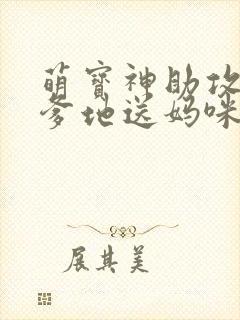 萌寶神助攻
爹地送妈咪
展其美